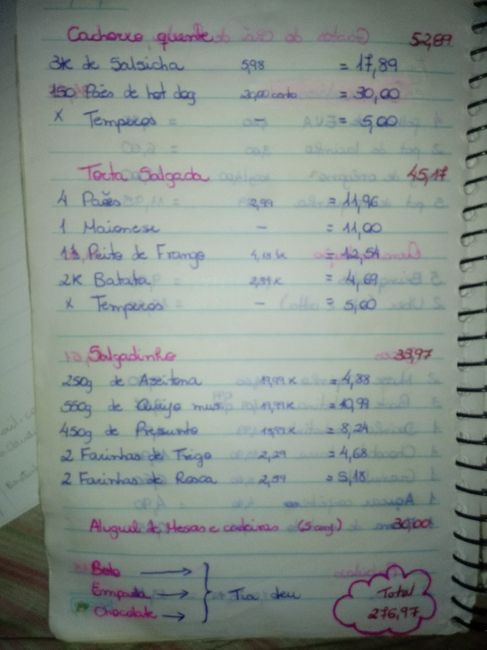 Cachorro quente 52,89
3K de Salsicha 5,98 = 17,89
150 Pães de hot dog 20,00 cento = 30,00
X Temperos = 5,00
Torta Salgada 45,17
4 Pães 2,99 = 11,96
1 Maionese - = 11,00
Peito de Frango = 12,54
2K Batata = 4,69
X Temperos - = 5,00
Salgadinho 33,97
250g de Azeitona 19,99 K = 4,88
550g de Queijo mus = 10,99
450g de Presunto = 8,24
2 Farinhas de Trigo 2,29 = 4,68
2 Farinhas de Rosca 2,59 = 5,18
Aluguel de Mesas e cadeiras 30,00
Bolo
Empada Tia deu Total
Chocolate 276,97